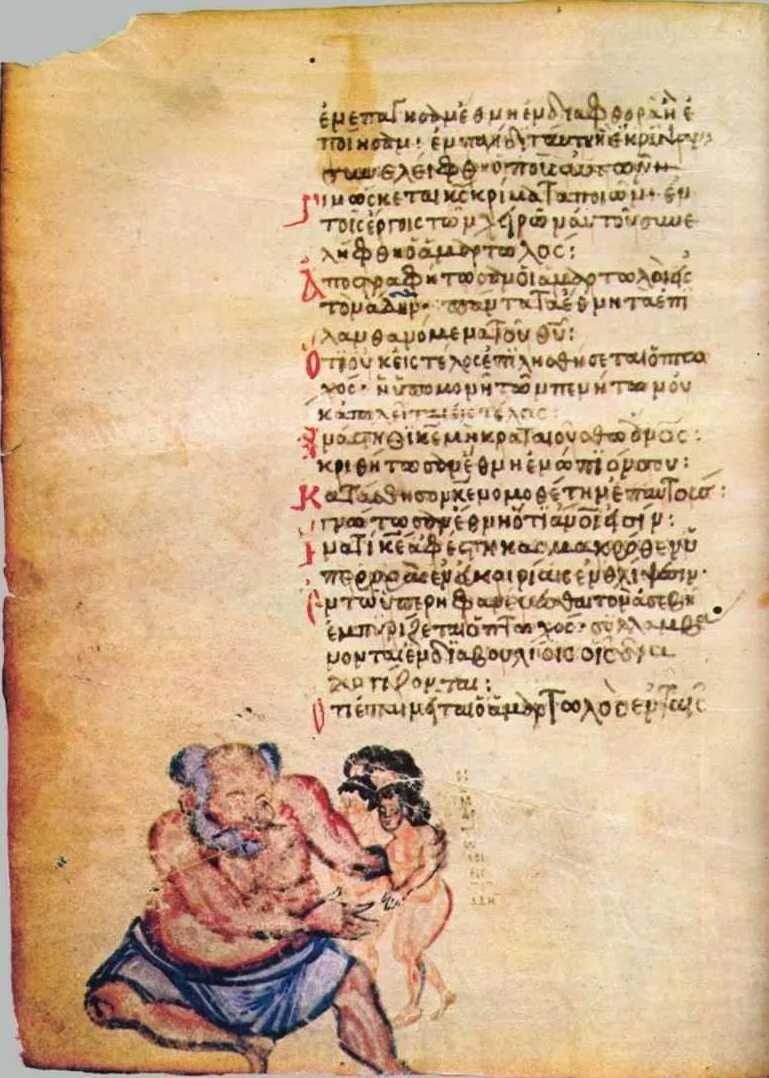 ἐνεπάγησαν ἔθνη ἐν διαφθορᾷ ᾗ ἐ
ποίησαν· ἐν παγίδι ταύτῃ ᾗ ἔκρυψαν
ὁ ποὺς αὐτῶν
Γινώσκεται κς κρίματα ποιῶν· ἐν
τοῖς ἔργοις τῶν χειρῶν αὐτοῦ συνε
λήφθη ὁ ἁμαρτωλός:
Ἀποστραφήτωσαν οἱ ἁμαρτωλοὶ εἰς
τὸν ᾅδην· πάντα τὰ ἔθνη τὰ ἐπι
λανθανόμενα τοῦ θυ:
Ὅτι οὐκ εἰς τέλος ἐπιλησθήσεται ὁ πτω
χός· ἡ ὑπομονὴ τῶν πενήτων οὐ
κ ἀπολεῖται εἰς τέλος:
Ἀνάστηθι κε μὴ κραταιούσθω ἄνος:
κριθήτωσαν ἔθνη ἐνώπιόν σου:
Κατάστησον κε νομοθέτην ἐπ αὐτούς:
γνώτωσαν ἔθνη ὅτι ἄνοί εἰσιν:
Ἵνα τί κε ἀφέστηκας μακρόθεν ὑ
περορᾷς ἐν εὐκαιρίαις ἐν θλίψεσιν·
Ἐν τῷ ὑπερηφανεύεσθαι τὸν ἀσεβῆ
ἐμπυρίζεται ὁ πτωχός· συλλαμβά
νονται ἐν διαβουλίοις οἷς δια
λογίζονται:
Ὅτι ἐπαινεῖται ὁ ἁμαρτωλὸς ἐν ταῖς